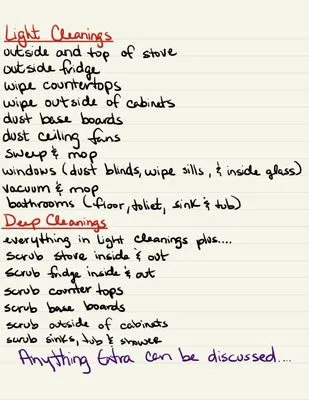 Light Cleanings
outside and top of stove
outside fridge
wipe countertops
wipe outside of cabinets
dust base boards
dust ceiling fans
sweep & mop
windows (dust blinds, wipe sills, & inside glass)
vacuum & mop
bathrooms (floor, toliet, sink & tub)
Deep Cleanings
everything in light cleanings plus....
scrub stove inside & out
scrub fridge inside & out
scrub counter tops
scrub base boards
scrub outside of cabinets
scrub sinks, tub & shower
Anything Extra can be discussed....